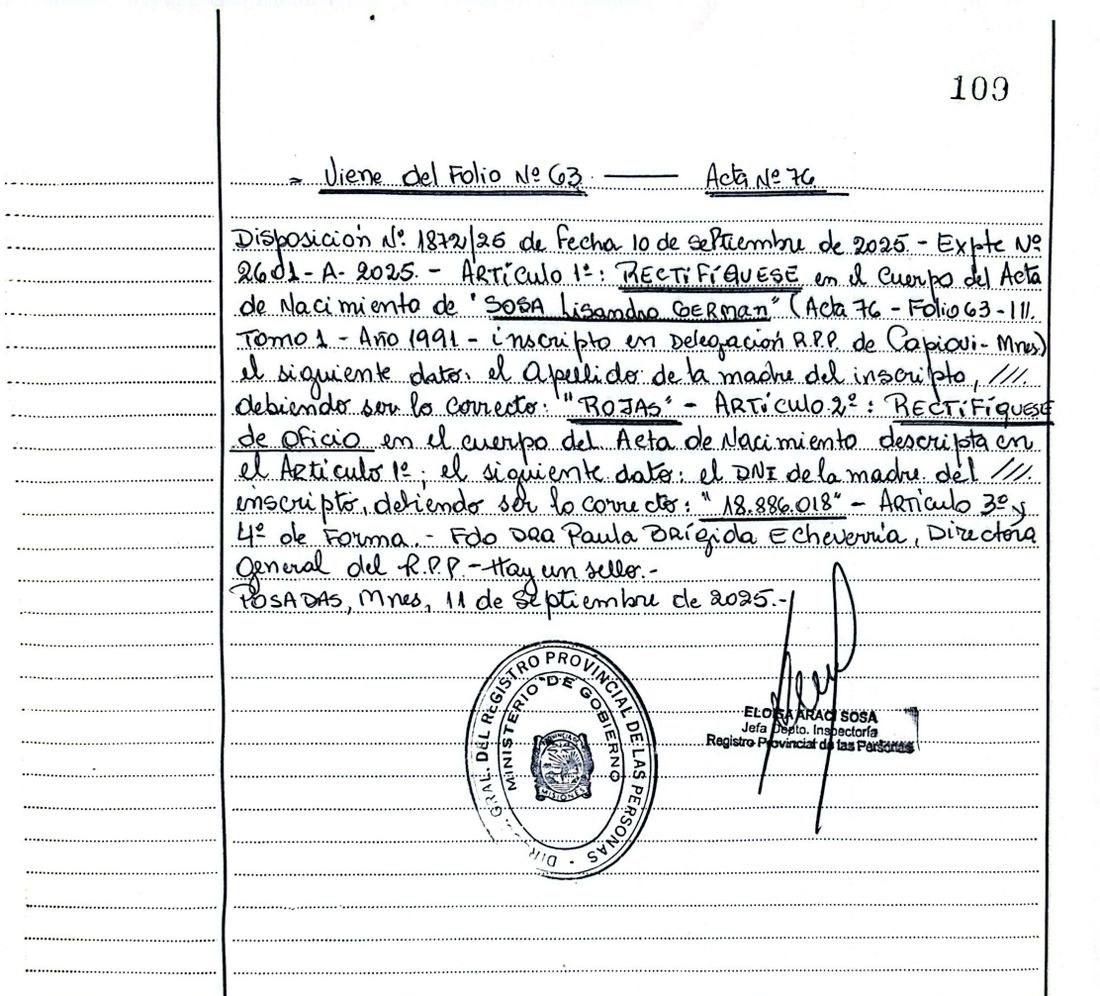 109
= Viene del Folio Nº 63. —— Acta Nº 76
Disposición Nº 1872/25 de fecha 10 de septiembre de 2025.- Expte Nº
2601-A-2025.- ARTÍCULO 1º: RECTIFÍQUESE en el cuerpo del Acta
de Nacimiento de "SOSA Lisandro GERMAN" (Acta 76 - Folio 63 - III.
Tomo 1 - Año 1991 - inscripto en Delegación R.P.P. de Capioui - Mnes)
el siguiente dato: el apellido de la madre del inscripto, ///.
debiendo ser lo correcto: "ROJAS" - ARTÍCULO 2º: RECTIFÍQUESE
de oficio en el cuerpo del Acta de Nacimiento descripta en
el Artículo 1º; el siguiente dato: el DNI de la madre del ///.
inscripto, debiendo ser lo correcto: "18.886.018" - Artículo 3º y
4º de Forma.- Fdo DRA Paula Brígida Echeverria, Directora
General del R.P.P.- Hay un sello.-
POSADAS, Mnes, 11 de Septiembre de 2025.-
DIR. GRAL. DEL REGISTRO PROVINCIAL DE LAS PERSONAS -
MINISTERIO DE GOBIERNO
PROVINCIA DE
MISIONES
ELOISA ARACI SOSA
Jefa Dpto. Inspectoría
Registro Provincial de las Personas